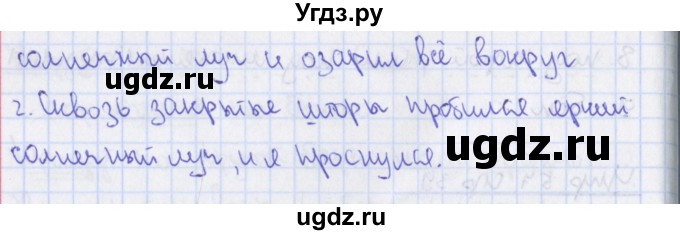 Угдз.ру
солнечный луч и озарил всё вокруг
2. Сквозь закрытые шторы пробился яркий
солнечный луч, и я проснулся.
ugdz.ru
ugdz.ru
ugdz.ru
ugdz.ru